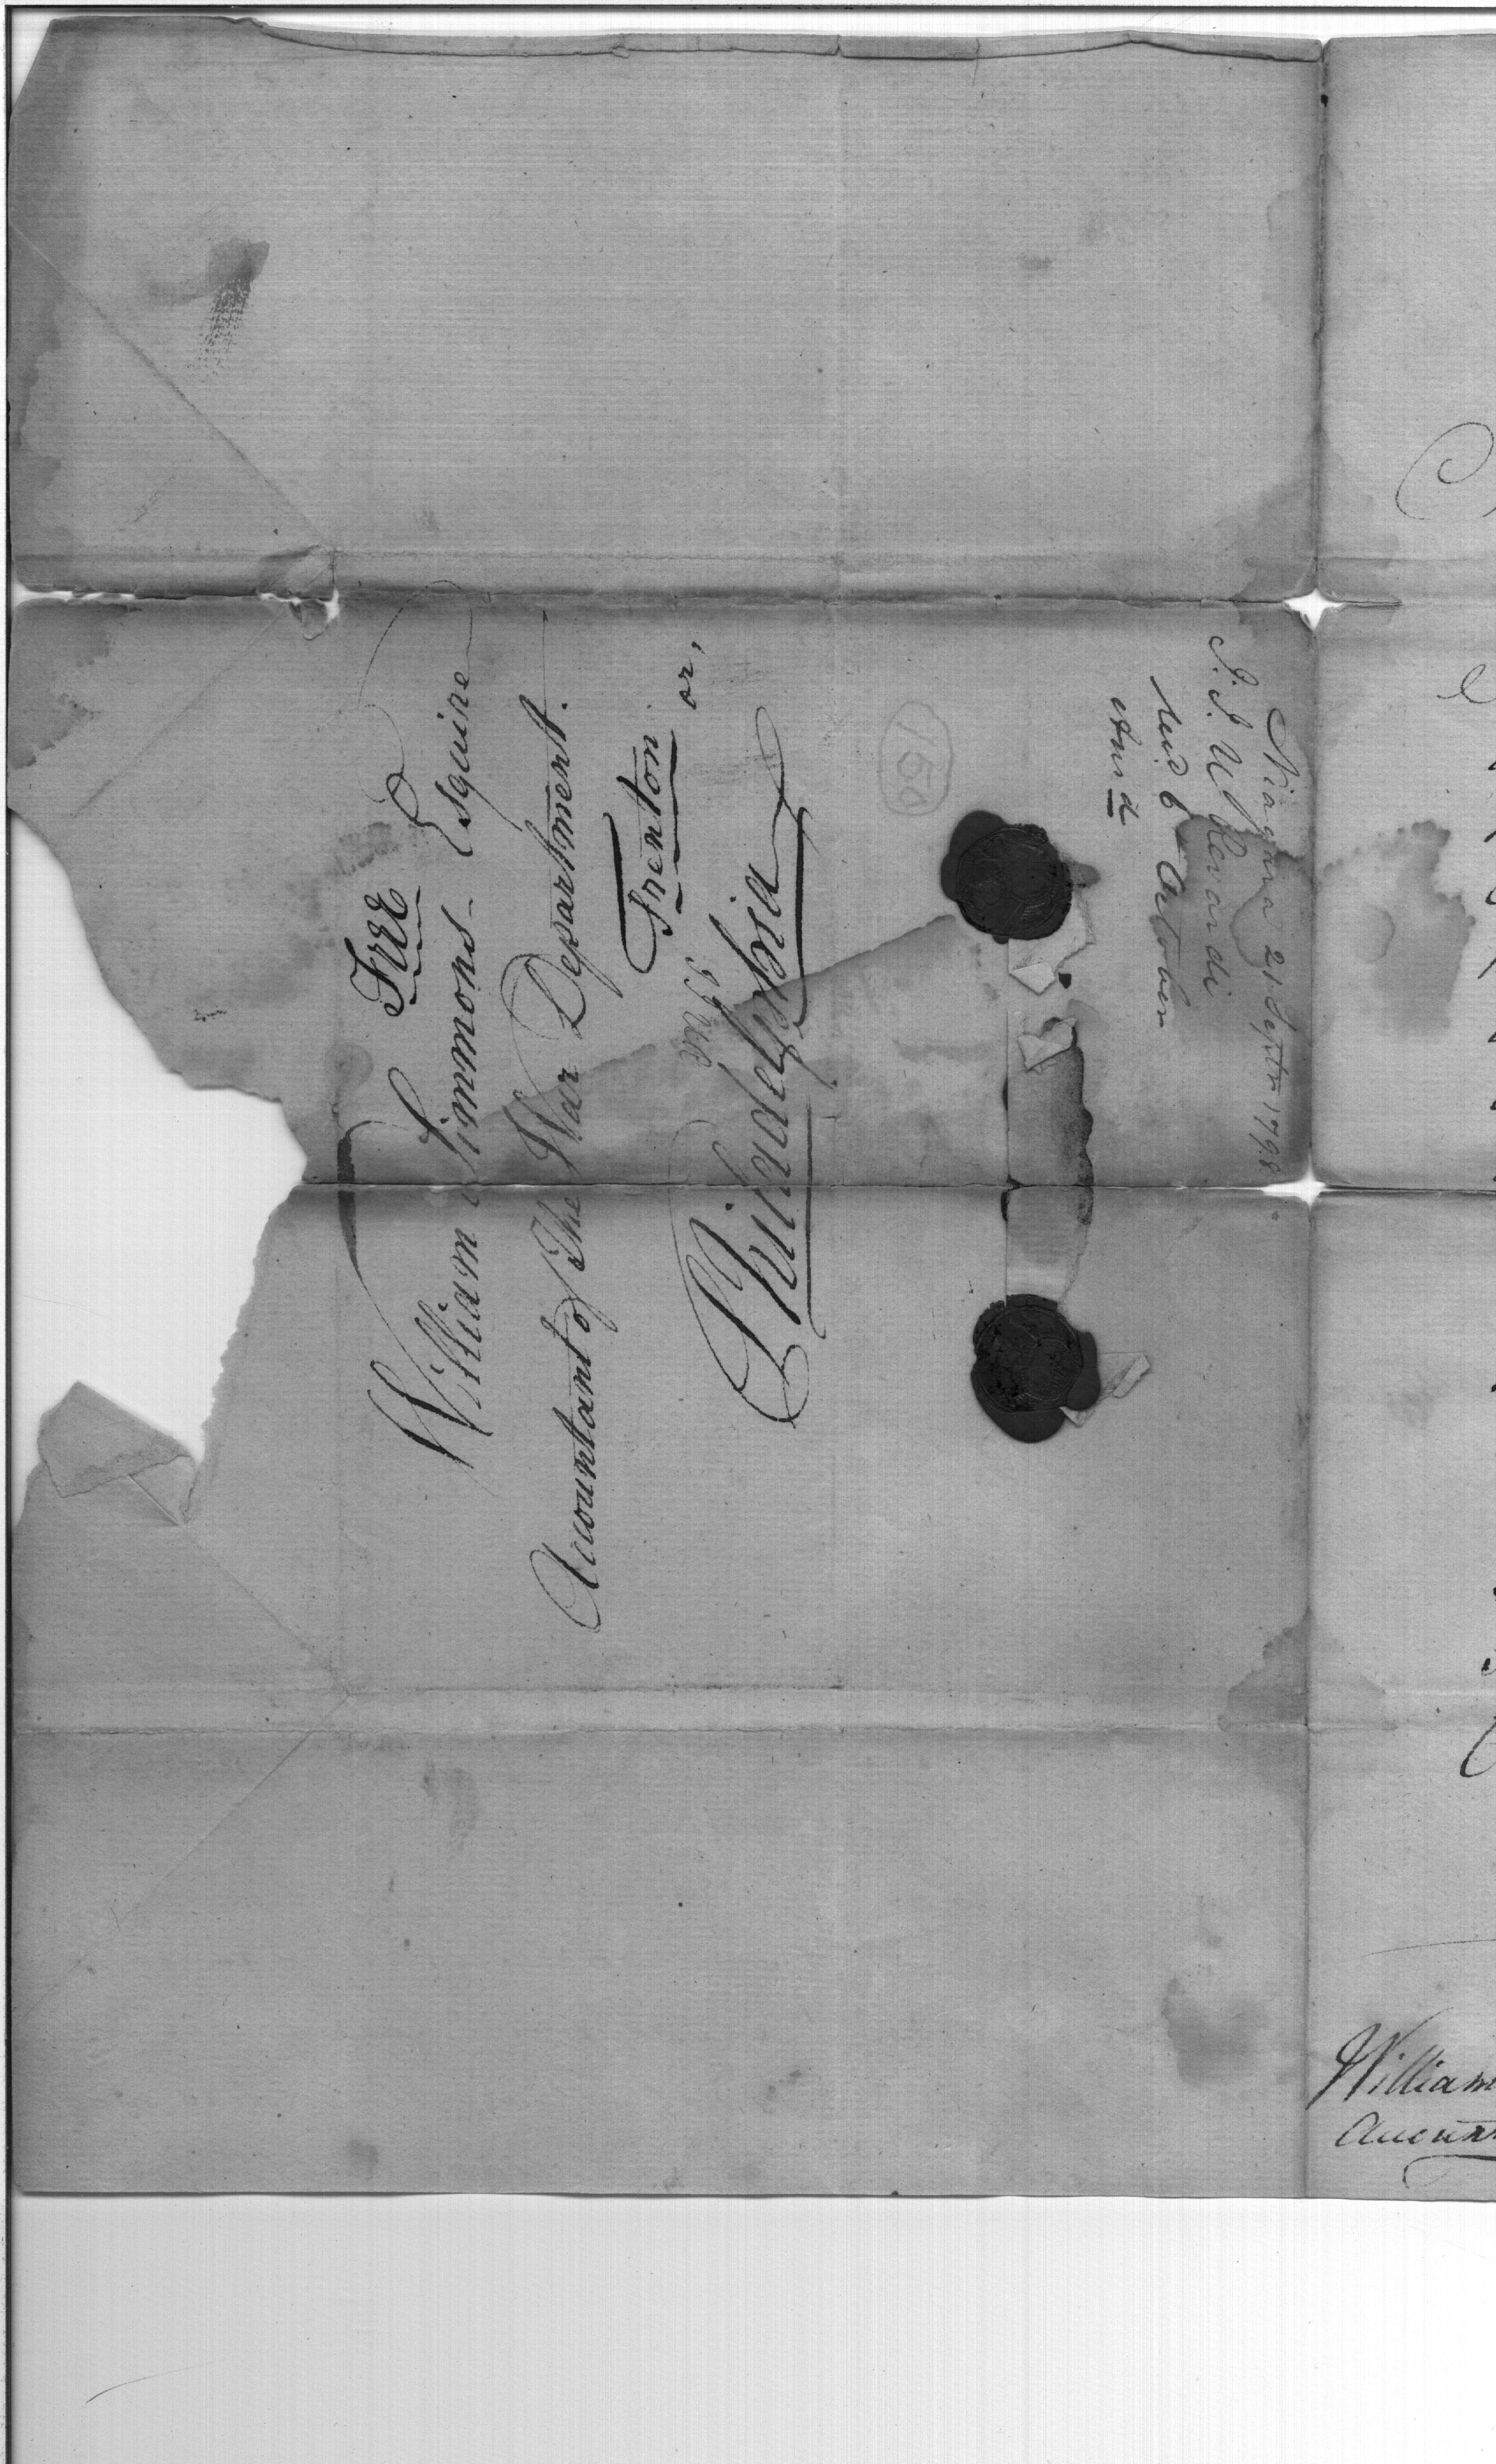 Free
William Simmons Esquire
Accountant of The War Department.
Trenton or,
Philadelphia
150
Niagara 21 Septr. 1798
J. J. U. Rivardi
recd 6 October
Ansd
William
Accoun